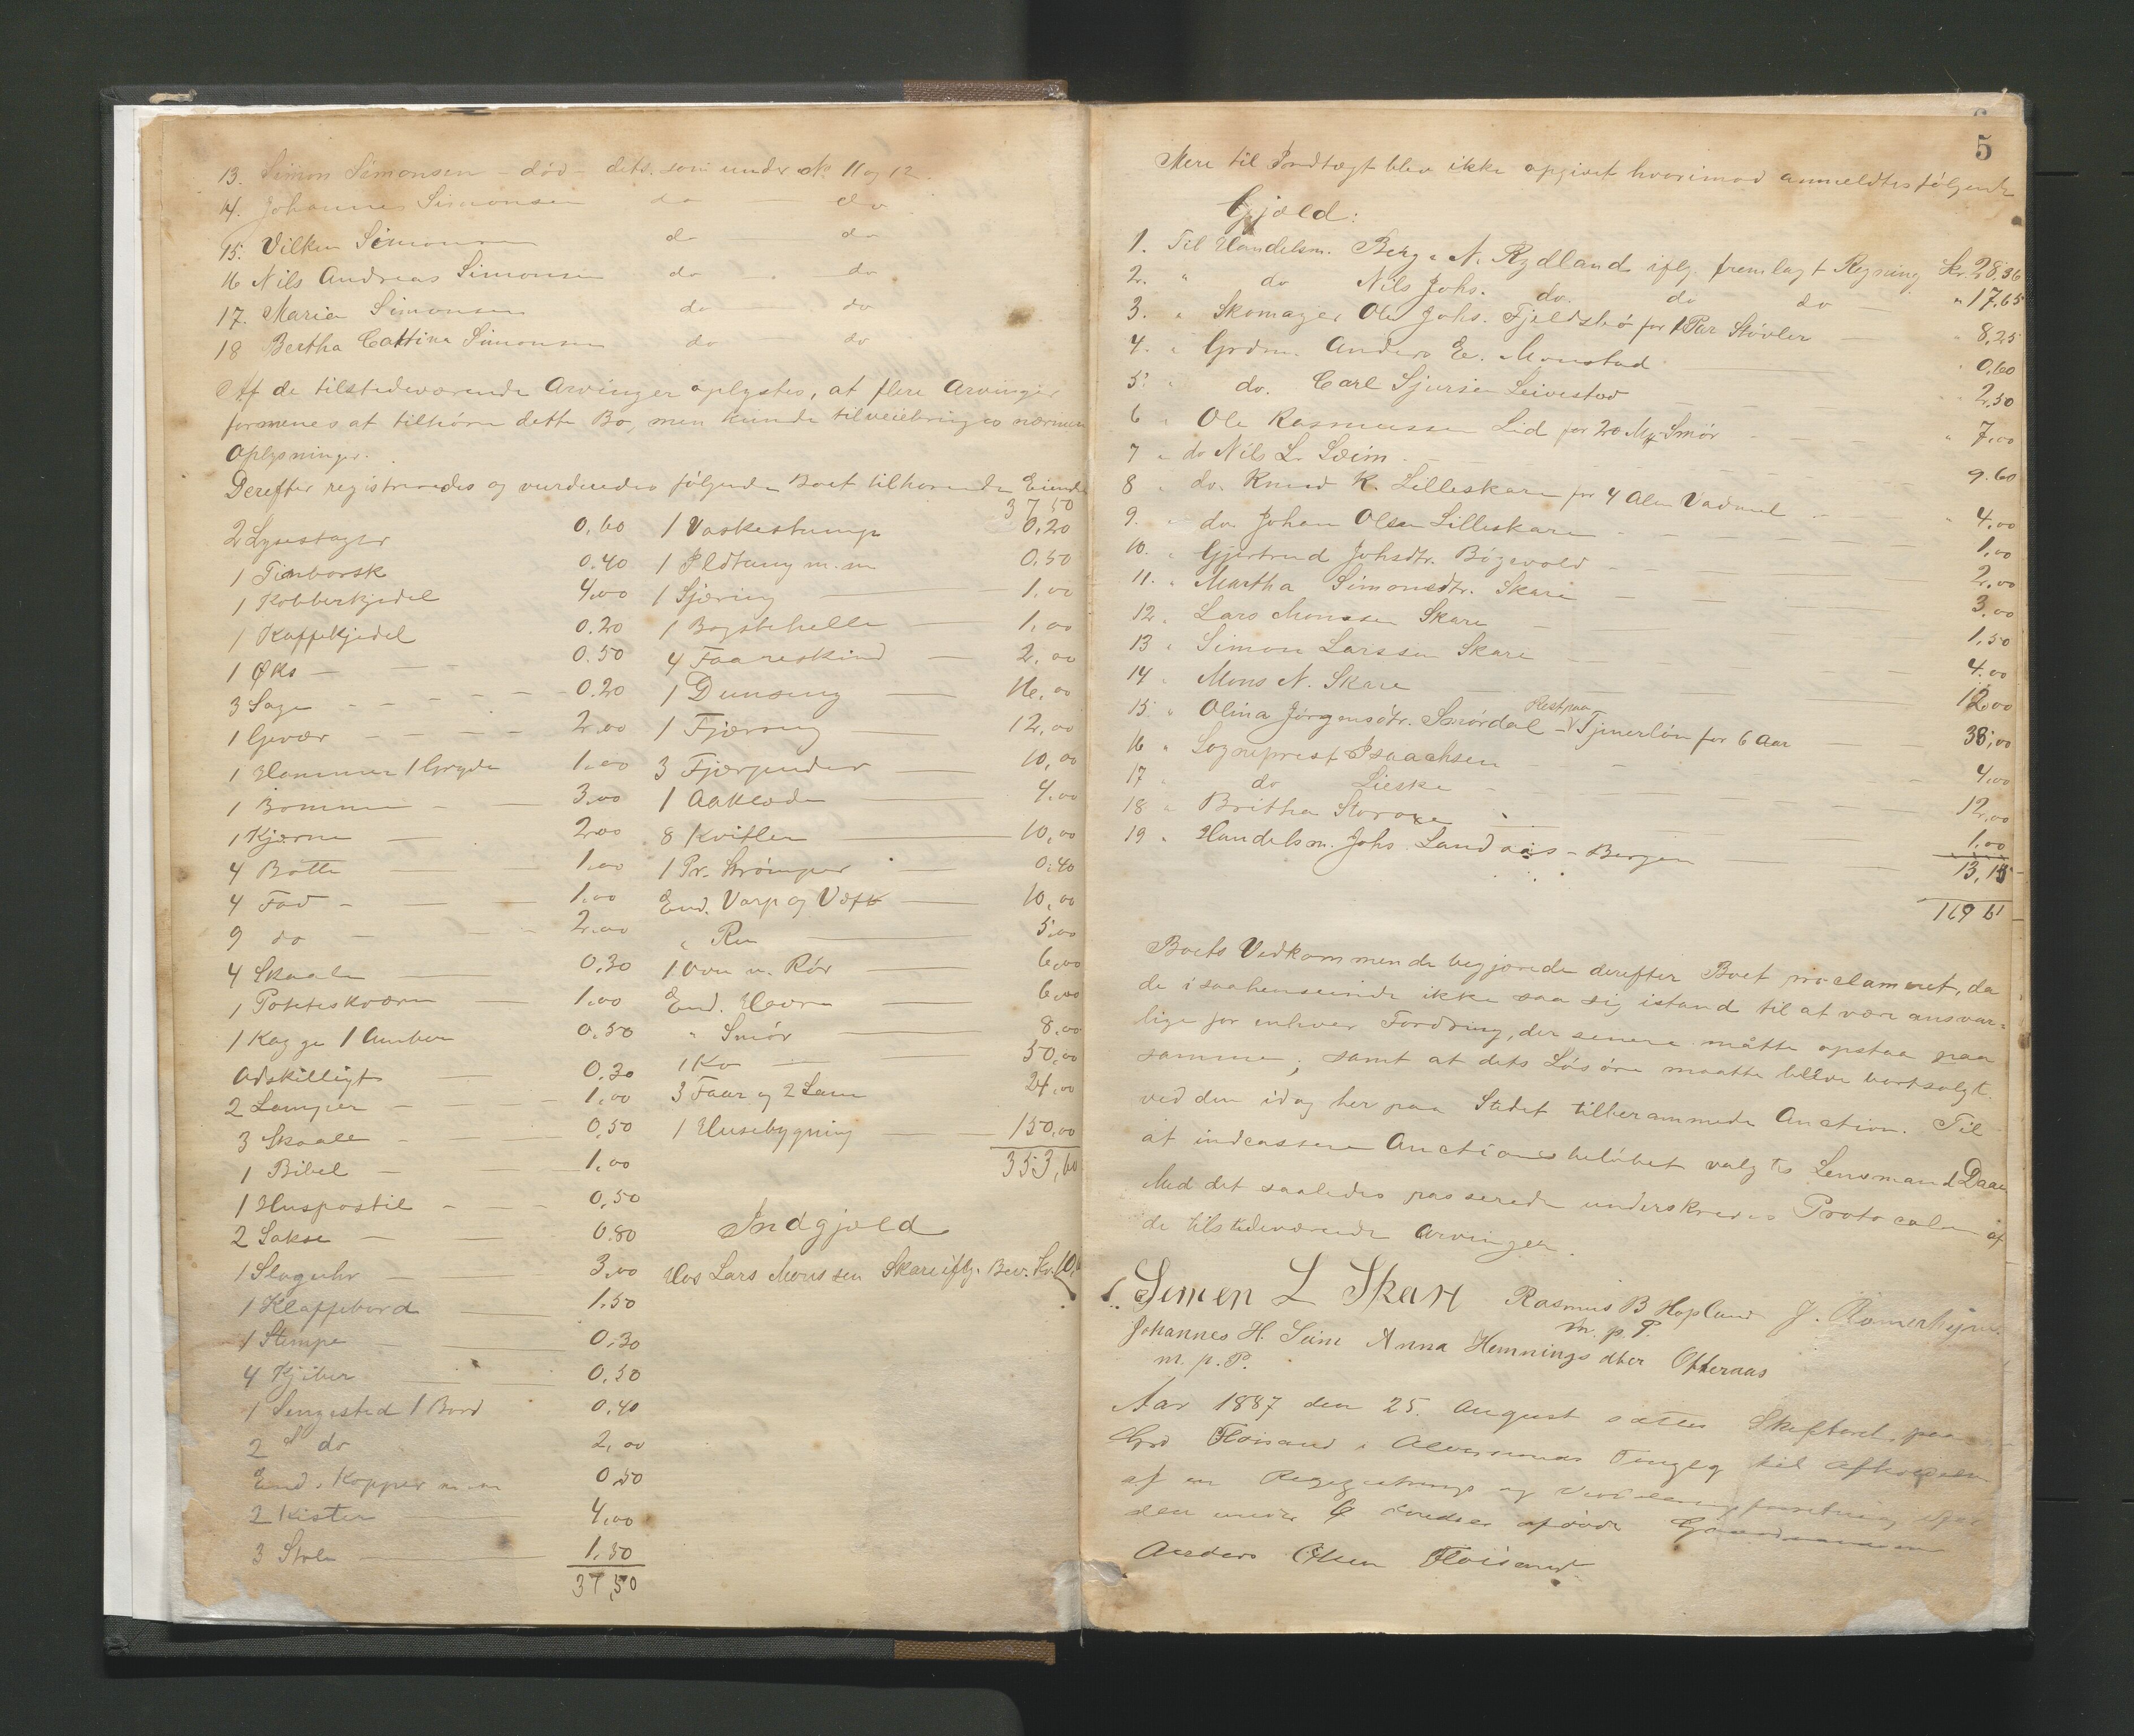 13. Simon Simonsen - död - dets. som under No 11 og 12.
14. Johannes Simonsen do do
15. Vilken Simonsen do do
16 Nils Andreas Simonsen do do
17. Maria Simonsen do do
18 Bertha Cattina Simonsen do do
Af de tilstedeværende Arvinger oplystes, at flere Arvinger
formenes at tilhöre dette Bo, men kunde tilveiebringes nærmere
Oplysninger.
Derefter registreredes og vurderedes følgende Boet tilhørende Eiendele
2 Lysestager 0,60
1 0.40
1 Kobberkjedel 4,00
1 Kaffekjedel 0.20
1 Øks 0.50
3 Sage 0.20
1 Gevær 2,00
1 Hammer 1 Gryde 1,00
1 Bommer 3,00
1 Kjærne 2,00
4 Bötte 1,00
4 Fad 1,00
9 do 2,00
4 Skaale 0,30
1 Potteskværn 1,00
1 Kagge 1 Ambar 0,50
Adskilligt 0,30
2 Lamper 1,00
3 Skaale 0,50
1 Bibel 1,00
1 Huspostil 0,50
2 Sakse 0.80
1 Slaguhr 3,00
1 Klaffebord 1,50
1 Stampe 0,30
4 Kjiber 0,50
1 Sengested 1 Bord 0,40
2 S do 2,00
End. Kopper m.m 0,50
2 Kister 4,00
3 Stole 1,50
37,50
37 50
1 Vaskestamp 0,20
1 Ildtang m.m 0,50
1 Sjæring 1,00
1 Bogstehelle 1,00
4 Faareskind 2,00
1 Dunseng 16,00
1 Fjærseng 12,00
3 Fjærpuder 10,00
1 Aaklæde 4,00
8 Kvitler 10,00
1 Pr. Strömper 0,40
End. Varp og Væft 10,00
" Ru 5,00
1 Ovn m. Rör 6,00
End. Havre 6,00
" Smör 8,00
1 Ko 50,00
3 Faar og 2 Lam 24,00
1 Husebygning 150,00
353,60
Indgjæld
Hos Lars Monssen Skare iflg. Bev. Kr. 10,
5
Mere til Indtægt blev ikke opgivet hvorimod anmeldtes følgende
Gjæld:
1. Til Handelsm. Berge N. Rydland iflg. fremlagt Regning Kr. 28.36
2. " do Nils Johs. do. do do " 17,65
3. " Skomager Ole Johs. Fjeldsbö for 1 Par Stövler 8,25
4. " Grdm. Anders E. Monstad 0,60
5. " do. Carl Sjursen Seivestad 2,50
6 " Ole Rasmussen Lid for 20 Mk Smör " 7,00
7 " do Nils L. Seim 9.60
8 " do. Knud K. Lilleskare for 4 Alen Vadmel " 4,00
9. " do. Johan Olsen Lilleskare 1,00
10. " Gjertrud Johsdtr. Bögevold 2,00
11. " Martha Simonsdtr. Skare 3,00
12. Lars Monssen Skare 1,50
13 " Simon Larssen Skare 4.00
14 " Mons N. Skare 12,00
15 " Olina Jörgensdtr. Smördal - Restpaa Tjenerlön for 6 Aar 38,00
16 " Sogneprest Isaachsen 4,00
17 do Lieske 12,00
18 " Britha Storoxe 1,00
19 " Handelsm. Johs. Landaas - Bergen 13,15
169 61
Boets Vedkommende begjærede derefter Boet proclameret, da
de i saahenseende ikke saa sig istand til at være ansvar-
lige for enhver Fordring, der senere måtte opstaa paa
samme; samt at dets Lösöre maatte blive bortsolgt
ved den idag her paa Stedet tilberammede Auction. Til
at indcassere Auctionsbelöbet valgtes Lensmand Daae
Med det saaledes passerede underskreves Protocolen af
de tilstedeværende Arvinger.
Simen L Skare Rasmus B Hopland J. Romerheim.
m. p. P.
Johannes H. Seim Anna Hemningsdtter Ofteraas
m. p. P.
Aar 1887 den 25. August sattes Skifteret paa
Grd Floisand i Alversunds Tinglg til Afholdelse
af en Registrerings og Vurderingsforretning efter
den under 6 afdöde Gaardmand
Anders Olsen Floisand